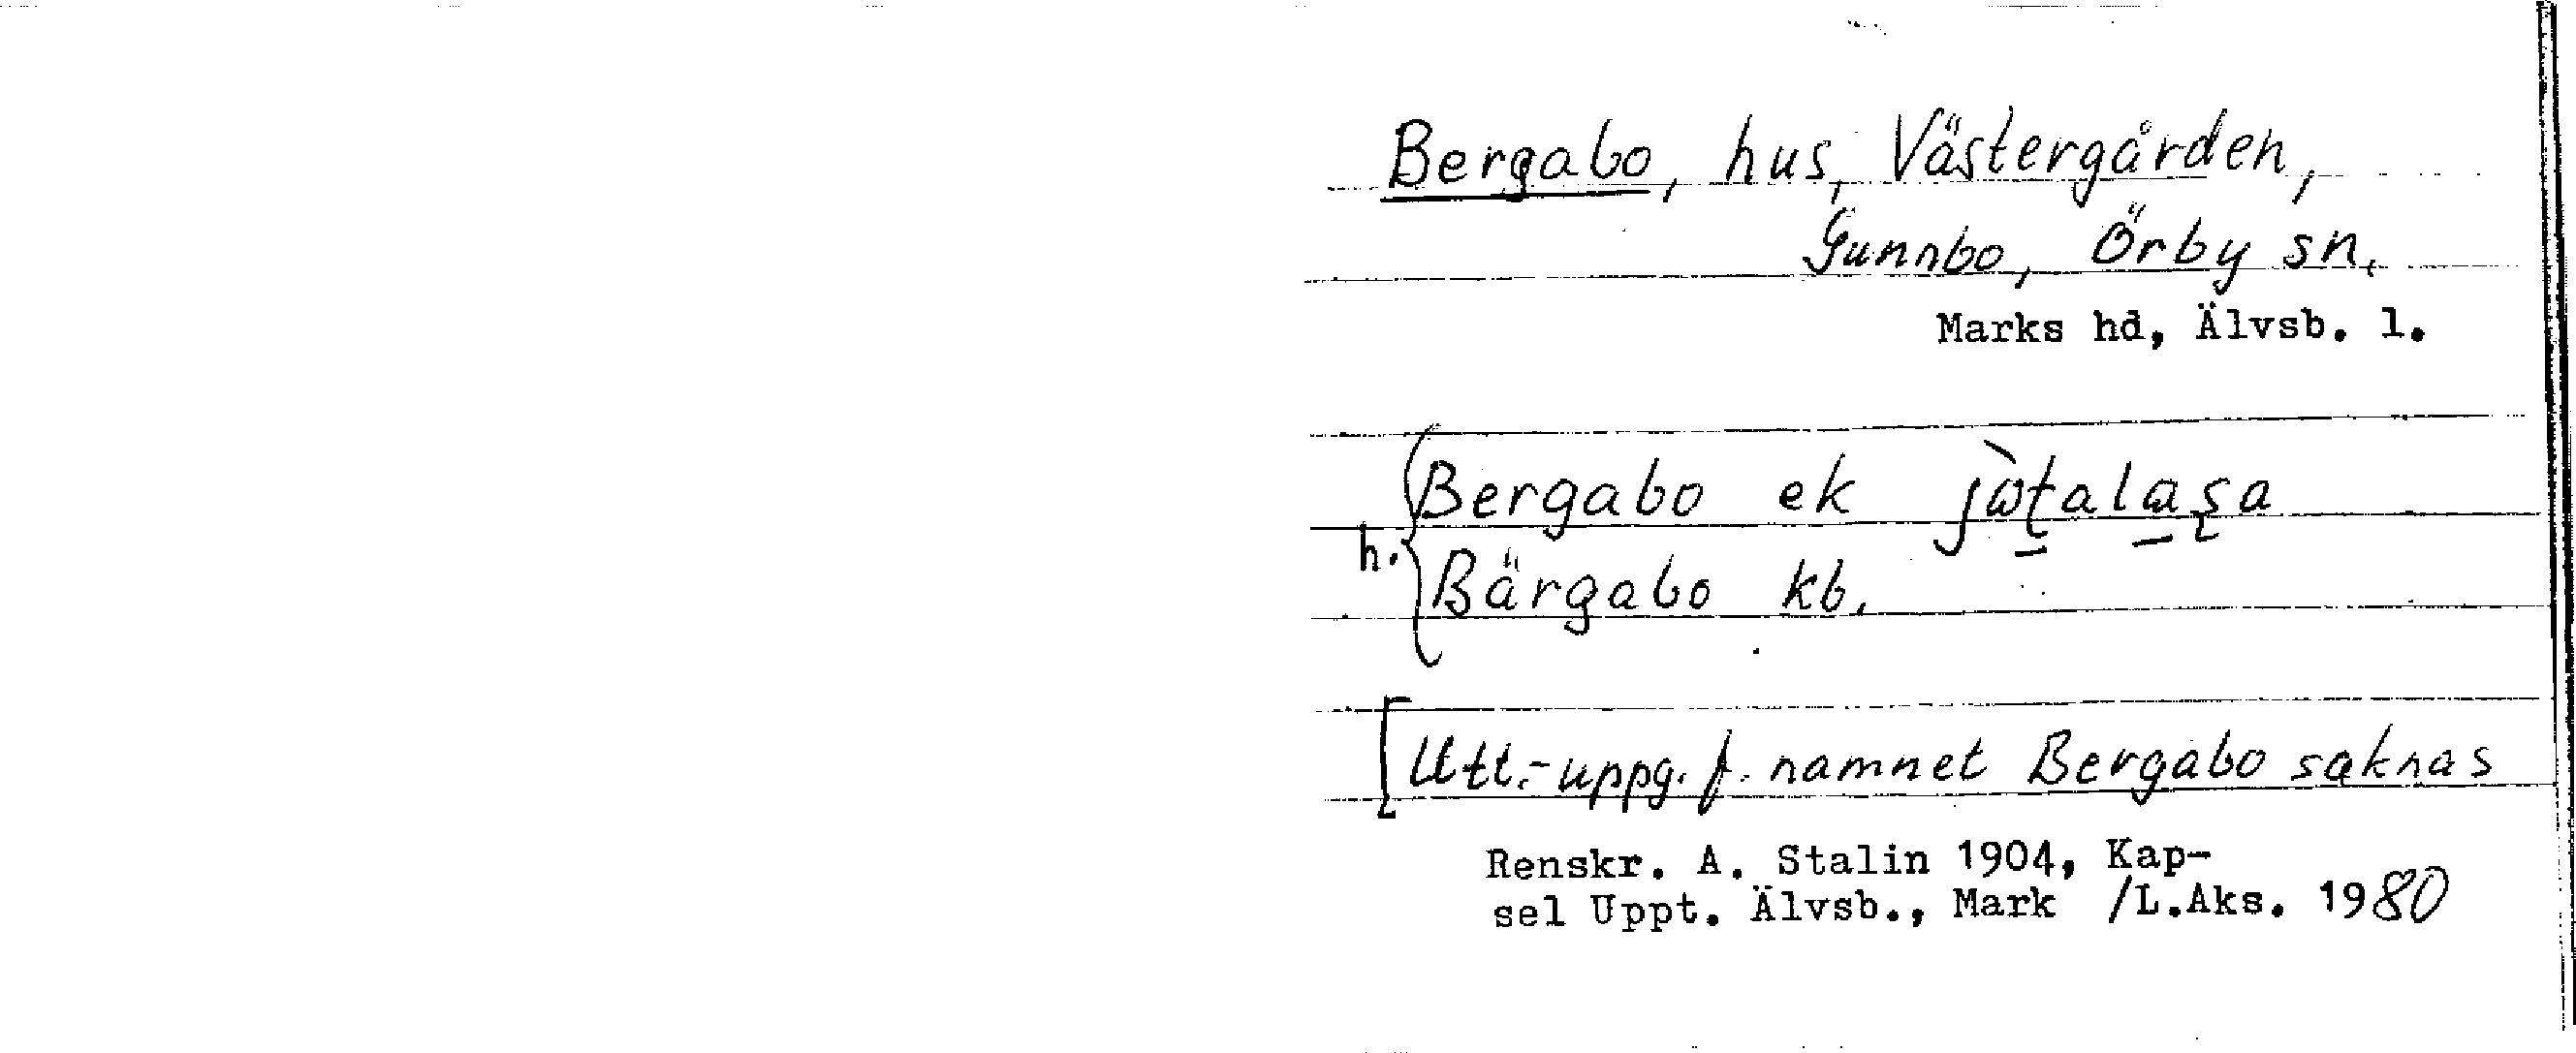 Bergabo, hus, Västergården,
Gunnbo, Örby sn.
Marks hd, Älvsb. l.
Bergabo ek
h.
Bärgabo kb.
[Utt.-uppg. f. namnet Bergabo saknas
Renskr. A. Stalin 1904, Kap-
sel Uppt. Älvsb., Mark /L.Aks. 1980